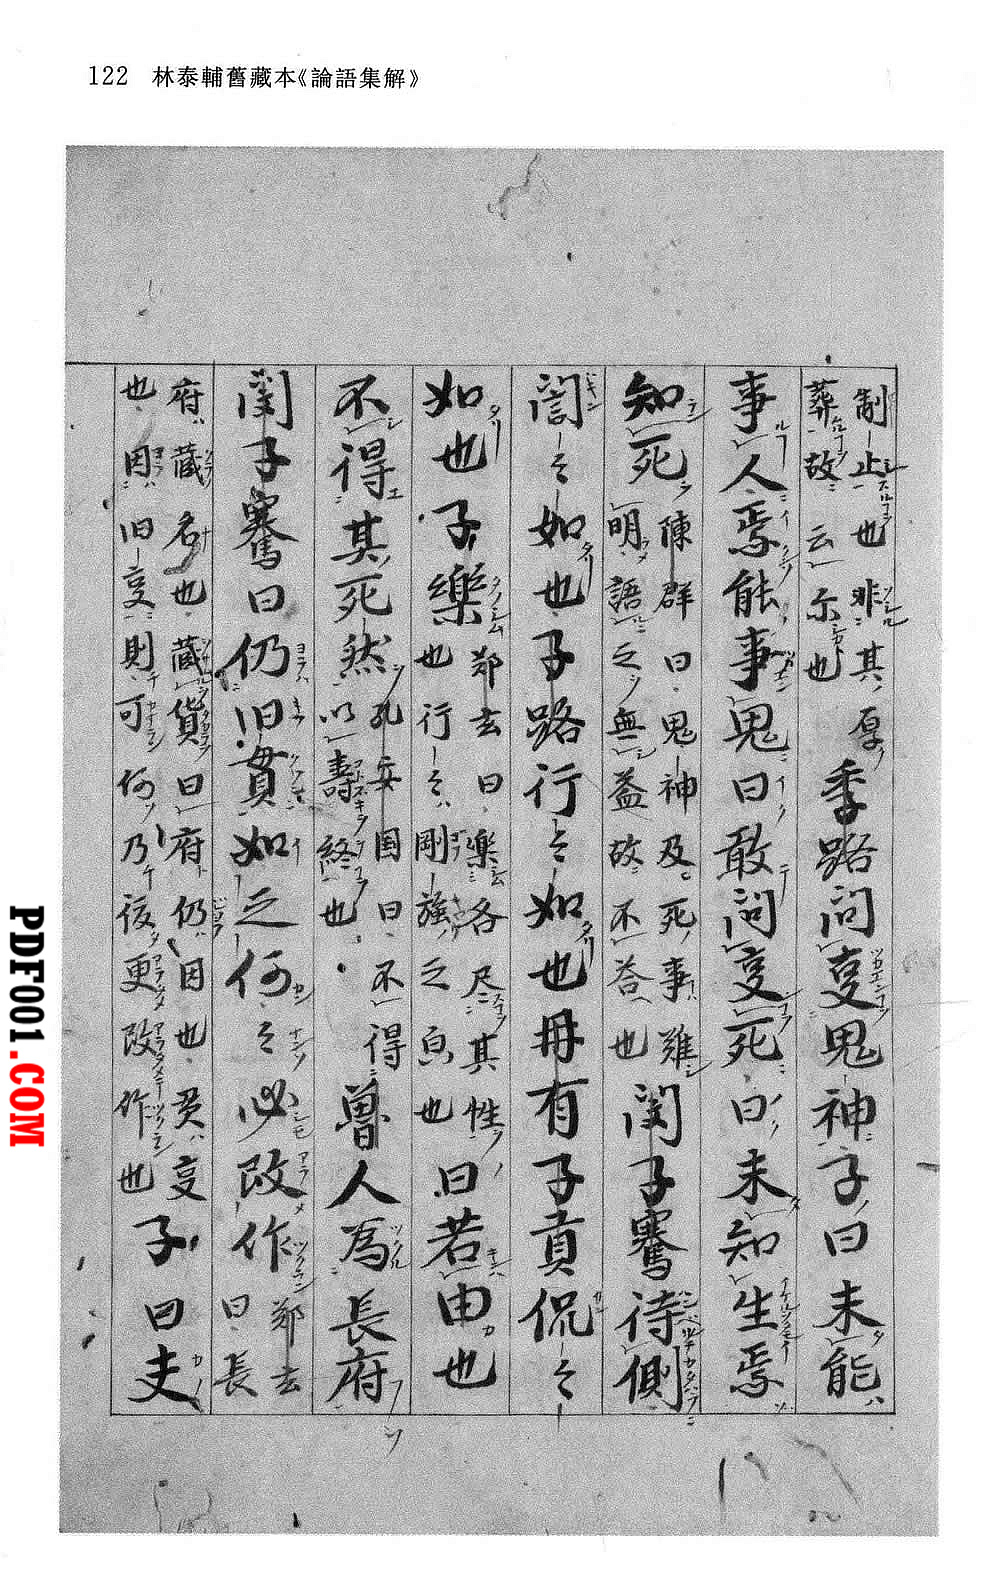 122 林泰輔舊藏本《論語集解》
制止也非其厚
葬故云尓也
季路問叓鬼神子曰未能
事人焉能事鬼曰敢問叓死曰未知生焉
知死
陳群曰鬼神及死事難
明語之無益故不荅也
閔子騫待側
誾〻如也子路行〻如也冉有子貢侃〻
如也子樂
鄭玄曰樂各尽其性
也行〻剛強之皃也
曰若由也
不得其死然
孔安国曰不得
以壽終也
魯人為長府
閔子騫曰仍旧貫如之何〻必改作
鄭玄
曰長
府藏名也藏貨曰府仍因也貫叓
也因旧叓則可何乃復更改作也
子曰夫
PDF001.COM